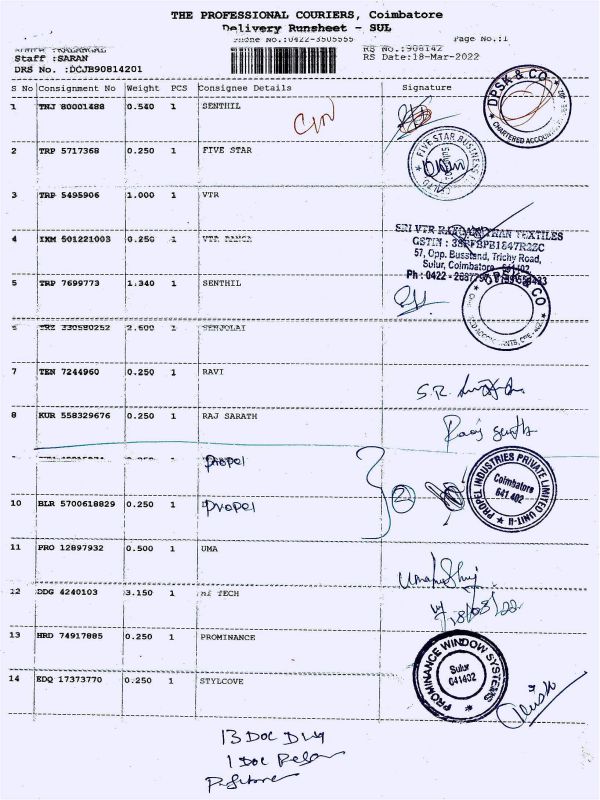 THE PROFESSIONAL COURIERS, Coimbatore
Delivery Runsheet - SUL
Phone No.:0422-3505555 Page No.:1
RS No.:908142
Staff :SARAN RS Date:18-Mar-2022
DRS No. :DCJB90814201
S No Consignment No Weight PCS Consignee Details Signature
1 TNJ 80001488 0.540 1 SENTHIL
DPSK & CO
CHARTERED ACCOUNTANTS
2 TRP 5717368 0.250 1 FIVE STAR
FIVE STAR BUSINESS
3 TRP 5495906 1.000 1 VTR
SRI VTR TEXTILES
4 IXM 501221003 0.250 1 VTR
57, Opp. Busstand, Trichy Road,
Sulur, Coimbatore 641402
5 TRP 7699773 1.340 1 SENTHIL
DPSK & CO
6 TRZ 330580252 2.600 1 SENJOLAI
7 TEN 7244960 0.250 1 RAVI
S.R.
8 KUR 558329676 0.250 1 RAJ SARATH
Propel
10 BLR 5700618829 0.250 1 Propel
2
PROPEL INDUSTRIES PRIVATE LIMITED UNIT-II
Coimbatore
641 402
11 PRO 12897932 0.500 1 UMA
12 DDG 4240103 3.150 1 TECH
18/03/22
13 HRD 74917885 0.250 1 PROMINANCE
PROMINANCE WINDOW SYSTEMS
Sulur
641402
14 EDQ 17373770 0.250 1 STYLCOVE
13 Doc
1 Doc